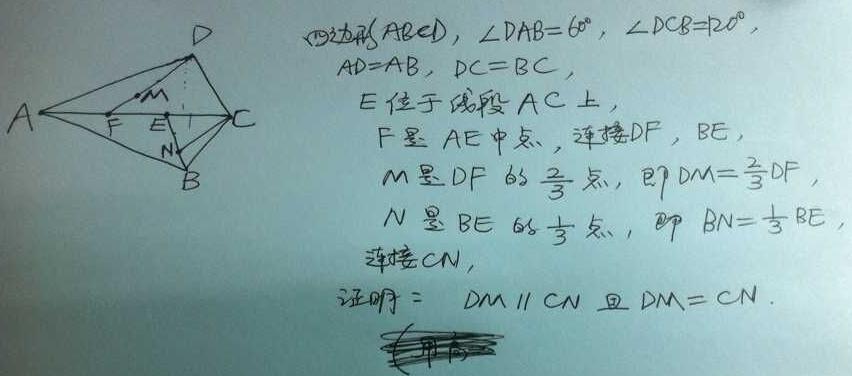 四边形ABCD, ∠DAB=60°, ∠DCB=120°,
AD=AB, DC=BC,
E位于线段AC上,
F是AE中点,连接DF,BE,
M是DF的2/3点,即DM=2/3DF,
N是BE的1/3点,即BN=1/3BE,
连接CN,
证明: DM∥CN且DM=CN.
D
A
M
F
E
C
N
B